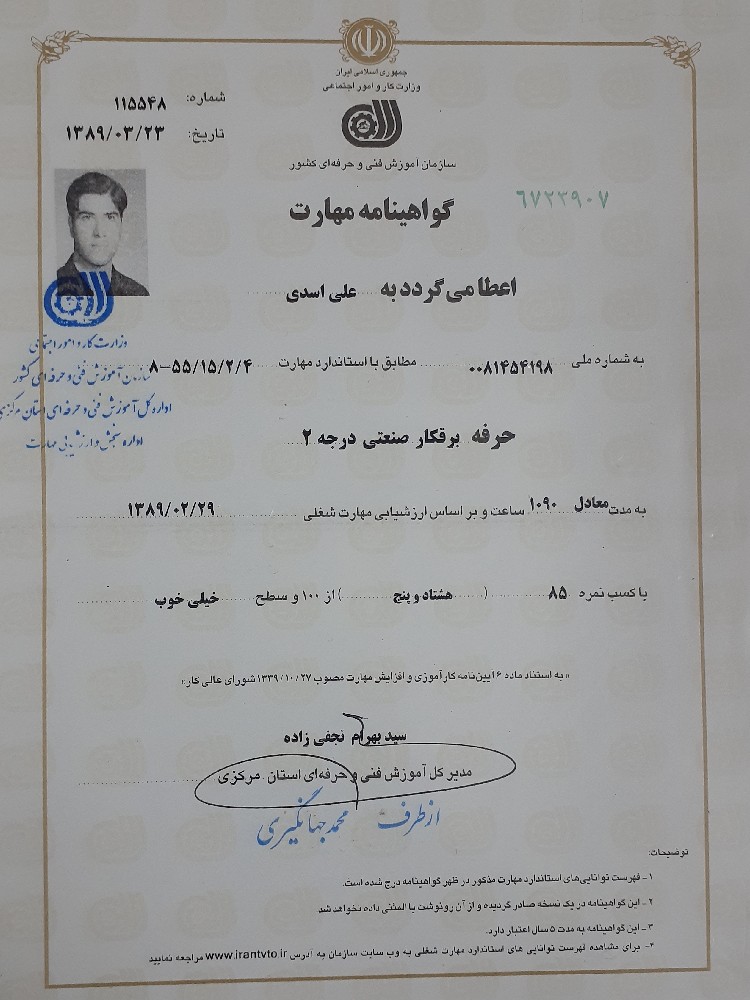 جمهوری اسلامی ایران
وزارت کار و امور اجتماعی
سازمان آموزش فنی و حرفه‌ای کشور
شماره: ۱۱۵۵۴۸
تاریخ: ۱۳۸۹/۰۳/۲۳
گواهینامه مهارت
۶۷۲۳۹۰۷
اعطا می گردد به علی اسدی
به شماره ملی ۰۰۸۱۴۵۴۱۹۸ مطابق با استاندارد مهارت ۸-۵۵/۱۵/۲/۴
وزارت کار و امور اجتماعی
سازمان آموزش فنی و حرفه ای کشور
اداره کل آموزش فنی و حرفه ای استان مرکزی
اداره سنجش و ارزشیابی مهارت
حرفه برقکار صنعتی درجه ۲
به مدت معادل ۱۰۹۰ ساعت و بر اساس ارزشیابی مهارت شغلی ۱۳۸۹/۰۲/۲۹
با کسب نمره ۸۵ (هشتاد و پنج) از ۱۰۰ و سطح خیلی خوب
« به استناد ماده ۶ آیین‌نامه کارآموزی و افزایش مهارت مصوب ۱۳۳۹/۱۰/۲۷ شورای عالی کار»
سید بهرام نجفی زاده
مدیر کل آموزش فنی و حرفه‌ای استان مرکزی
از طرف محمد جهانگیری
توضیحات:
۱- فهرست توانایی‌های استاندارد مهارت مذکور در ظهر گواهینامه درج شده است.
۲- این گواهینامه در یک نسخه صادر گردیده و از آن رونوشت یا المثنی داده نخواهد شد
۳- این گواهینامه به مدت ۵ سال اعتبار دارد.
۴- برای مشاهده فهرست توانایی های استاندارد مهارت شغلی به وب سایت سازمان به آدرس www.irantvto.ir مراجعه نمایید